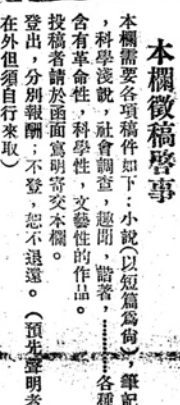 本欄徵稿啓事
本欄需要各項稿件如下：小說（以短篇爲尚），筆記
，科學淺說，社會調查，趣聞，諧著，………各種
含有革命性，科學性，文藝性的作品。
投稿者請於函面寫明寄交本欄。
登出，分別報酬；不登，恕不退還。（預先聲明者
在外但須自行來取）